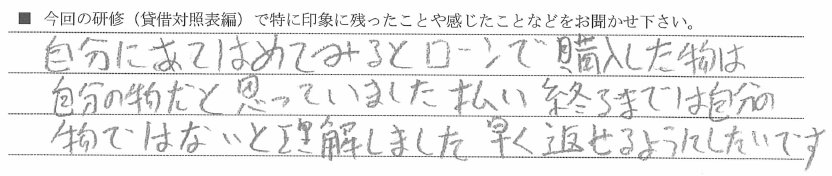 ■ 今回の研修（貸借対照表編）で特に印象に残ったことや感じたことなどをお聞かせ下さい。
自分にあてはめてみるとローンで購入した物は
自分の物だと思っていました払い終るまでは自分の
物ではないと理解しました早く返せるようにしたいです